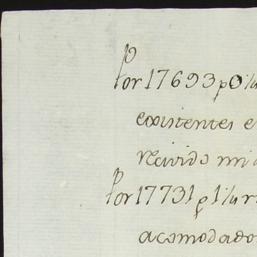 Por 17693 p 0
existentes e
recivido mi
Por 17731 p 1
acomodado